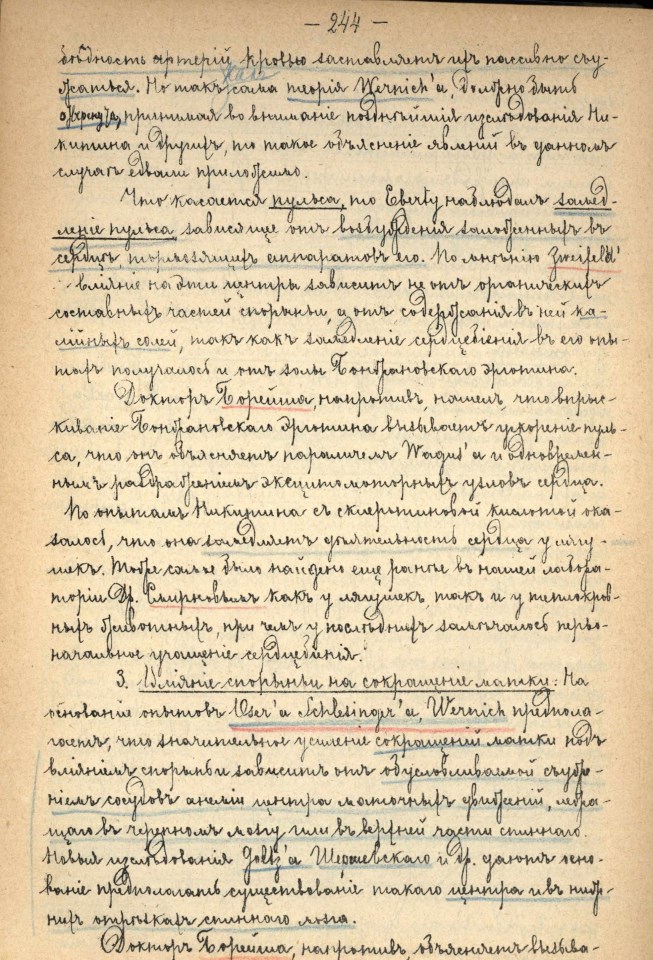 — 244 —
бѣдность артерій кровью заставляетъ ихъ пассивно съу-
жаться. Но такъ какъ сама теорія Wernich'а, должно быть
отвергнута, принимая во вниманіе позднѣйшія изслѣдованія Ни-
китина и другихъ, то такое объясненіе явленій въ данномъ
случаѣ едвали приложимо.
Что касается пульса, то Eberty наблюдалъ замед-
леніе пульса, зависящее отъ возбужденія заложенныхъ въ
сердцѣ, тормозящихъ аппаратовъ его. По мнѣнію Zweifel'
вліяніе на эти центры зависитъ не отъ органическихъ
составныхъ частей спорыньи, а отъ содержанія въ ней ка-
лійныхъ солей, такъ какъ замедленіе сердцебіенія въ его опы-
тахъ получалось и отъ золы Бонжановскаго эрготина.
Докторъ Борейша, напротивъ, нашелъ, что впрыс-
киваніе Бонжановскаго эрготина вызываетъ ускореніе пуль-
са, что онъ объясняетъ параличемъ Wagus'а и одновремен-
нымъ раздраженіемъ эксцитомоторныхъ узловъ сердца.
По опытамъ Никитина съ склеротиновой кислотой ока-
залось, что она замедляетъ дѣятельность сердца у лягу-
шекъ. Тоже самое было найдено еще ранѣе въ нашей лабора-
торіи Др. Смирновымъ какъ у лягушекъ, такъ и у теплокров-
ныхъ животныхъ, при чемъ у послѣднихъ замѣчалось перво-
начальное учащеніе сердцебіенія.
3. Вліяніе спорыньи на сокращеніе матки: На
основаніе опытовъ Oser'а и Schlesinger'а, Wernich предпола-
гаетъ, что значительное усиленіе сокращеній матки подъ
вліяніемъ спорыньи зависитъ отъ обусловливаемой съуже-
ніемъ сосудовъ анеміи центра маточныхъ движеній, лежа-
щаго въ черепномъ мозгу или въ верхней части спиннаго.
Новыя изслѣдованія Goltz'а Шершевскаго и др. даютъ осно-
ваніе предполагать существованіе такаго центра и въ ниж-
нихъ отрѣзкахъ спиннаго мозга.
Докторъ Борейша, напротивъ, объясняетъ вызыва-